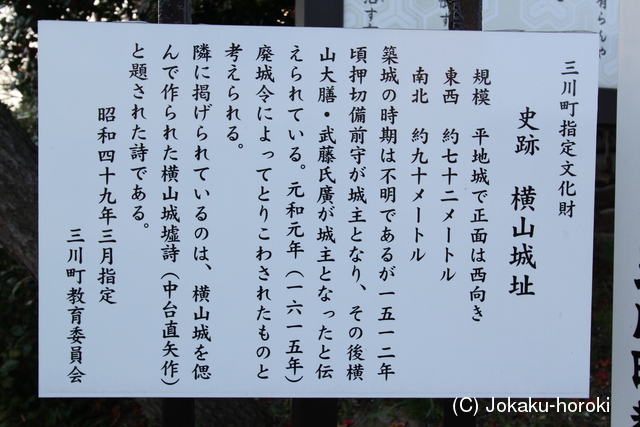 三川町指定文化財
史跡 横山城址
規模 平地城で正面は西向き
東西 約七十二メートル
南北 約九十メートル
築城の時期は不明であるが一五一二年
頃押切備前守が城主となり、その後横
山大膳・武藤氏廣が城主となったと伝
えられている。元和元年(一六一五年)
廃城令によってとりこわされたものと
考えられる。
隣に掲げられているのは、横山城を偲
んで作られた横山城墟詩(中台直矢作)
と題された詩である。
昭和四十九年三月指定
三川町教育委員会
(C) Jokaku-horoki